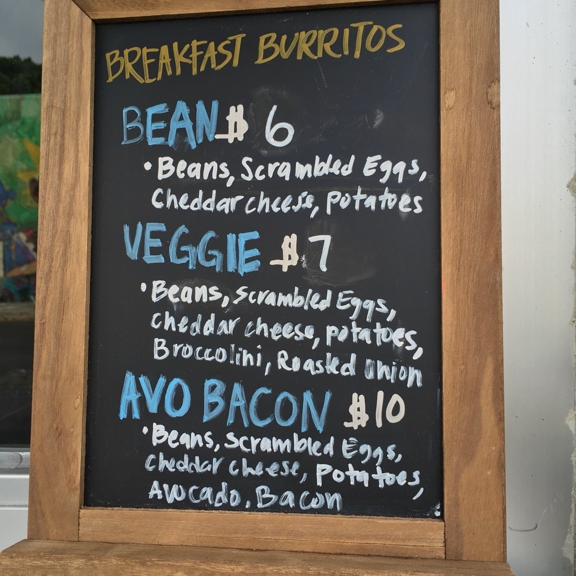 BREAKFAST BURRITOS
BEAN $ 6
• Beans, Scrambled Eggs,
Cheddar cheese, potatoes
VEGGIE $ 7
• Beans, Scrambled Eggs,
Cheddar cheese, potatoes,
Broccolini, Roasted onion
AVO BACON $10
• Beans, Scrambled Eggs,
Cheddar cheese, Potatoes,
Avocado, Bacon